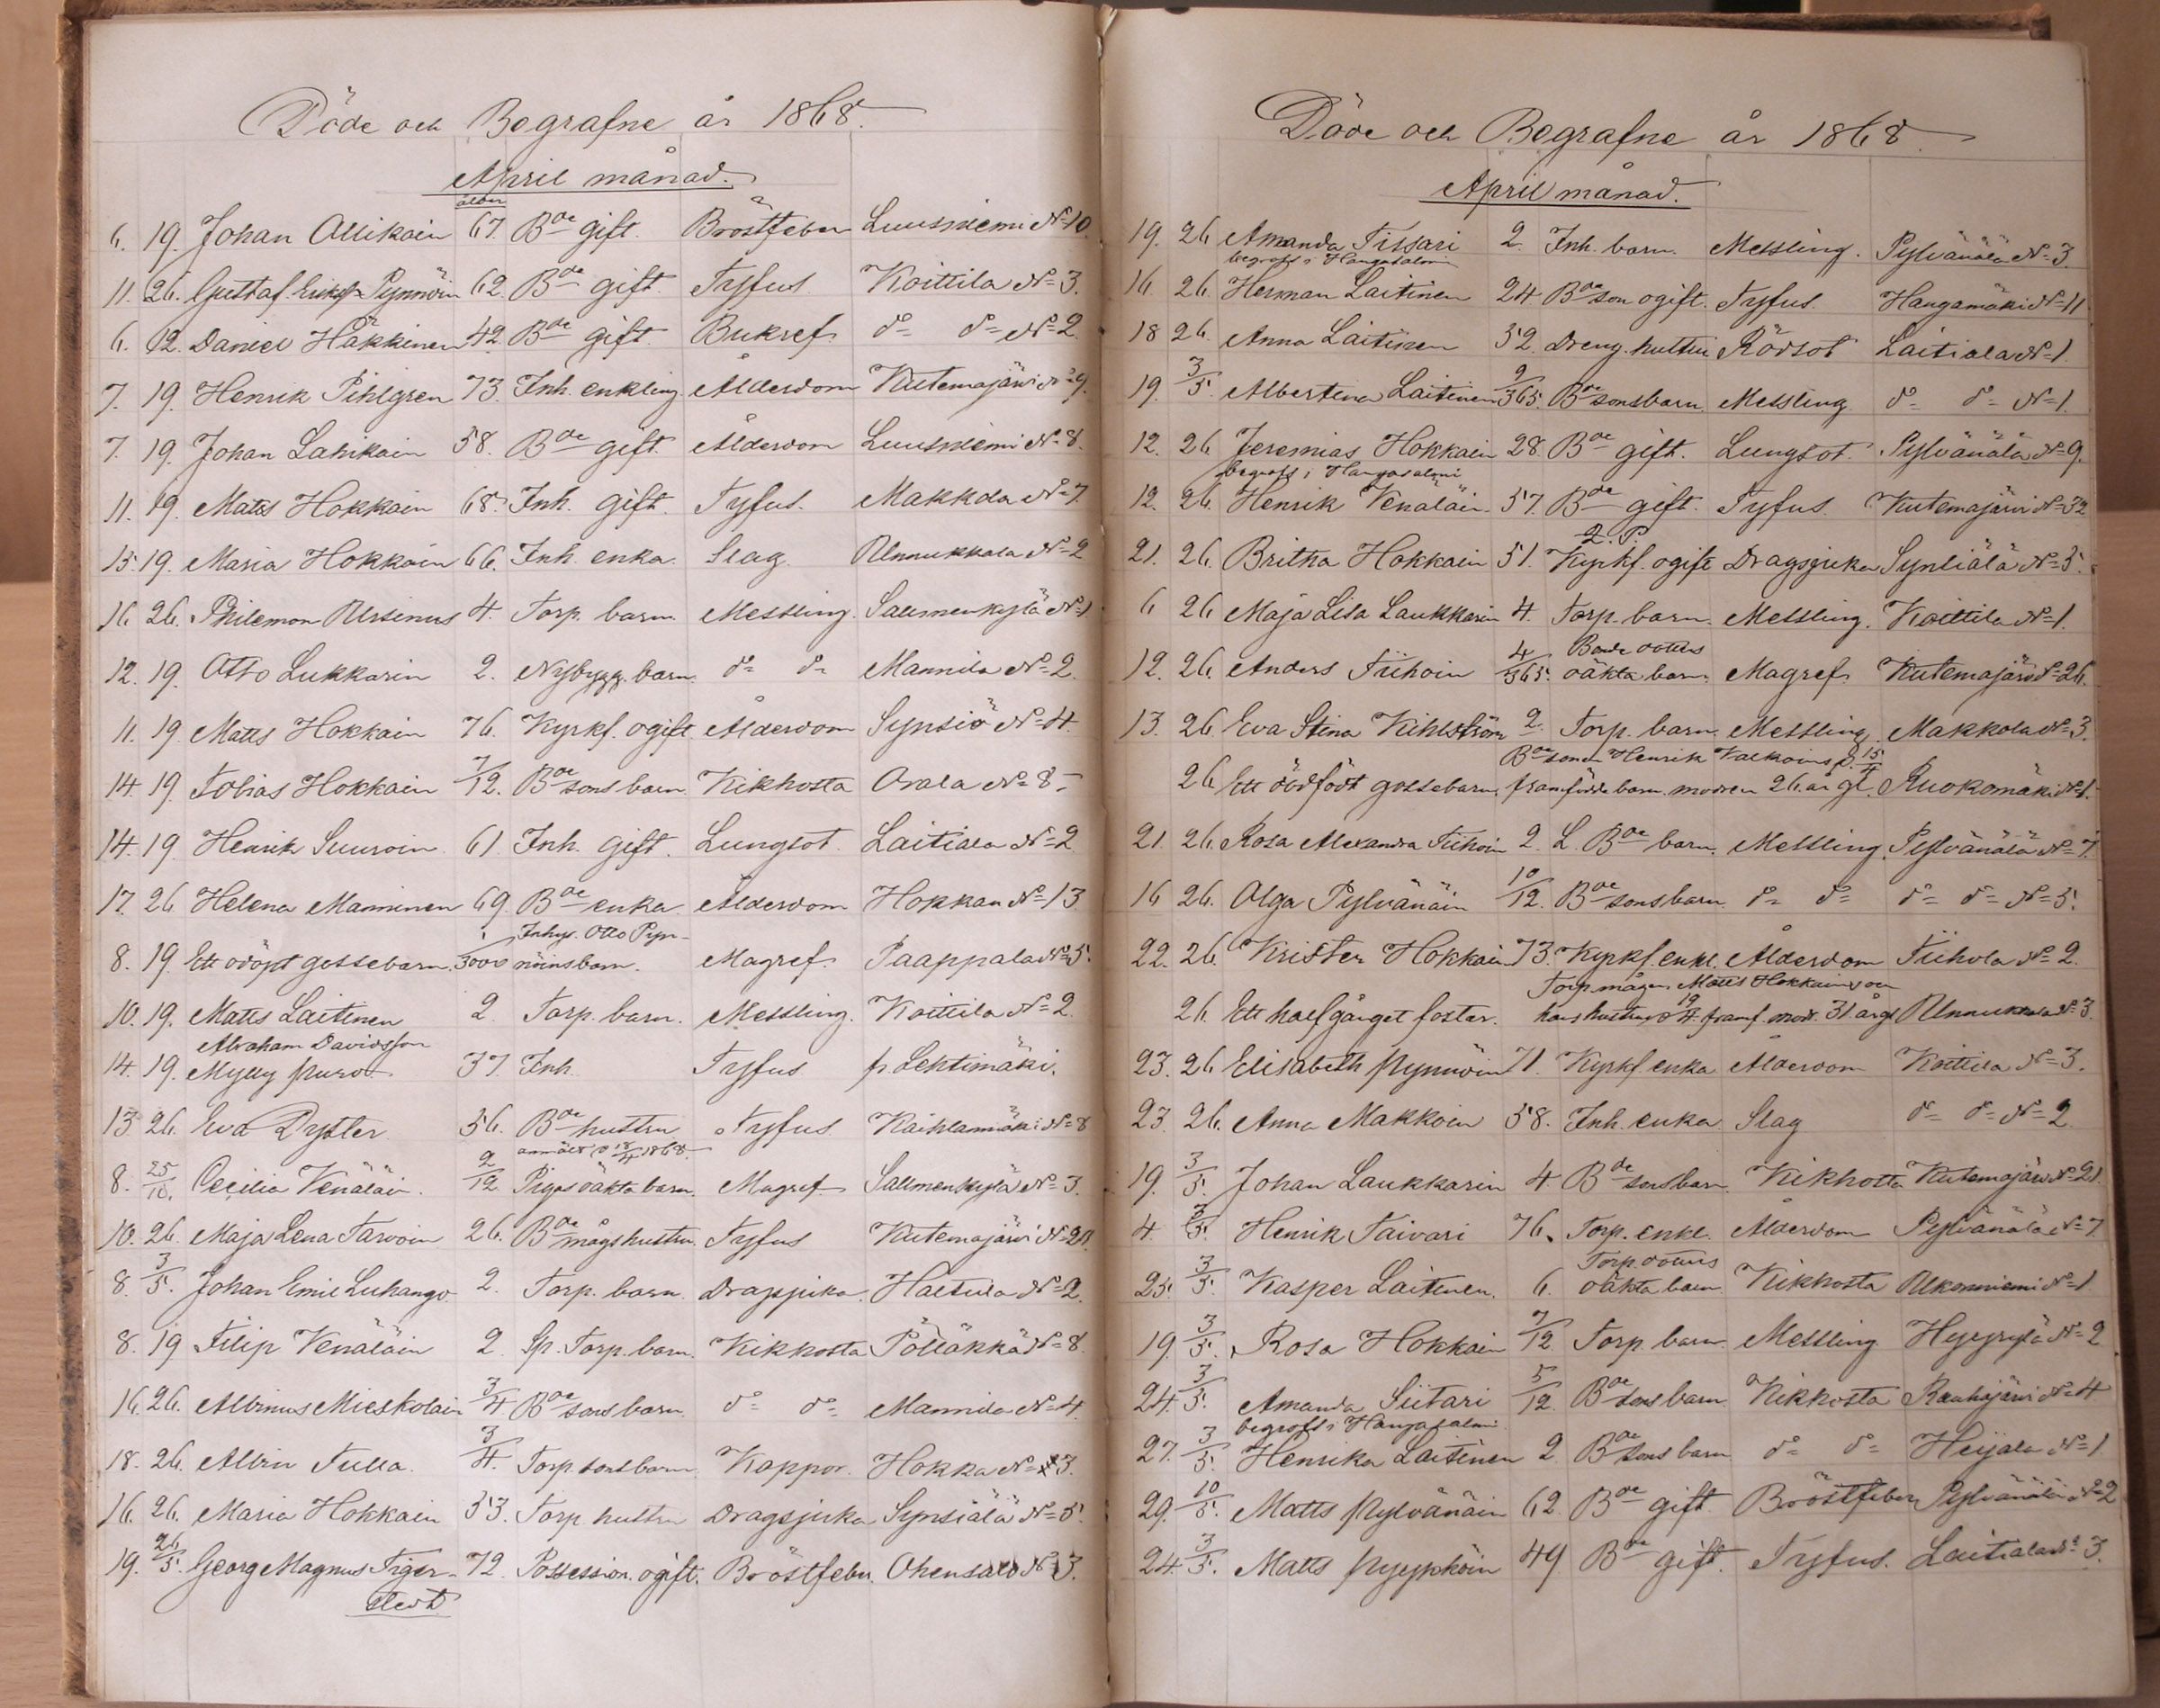 Döde och Begrafne år 1868.
April månad.
ålder
6. 19. Johan Ollikain 67. Bde gift. Bröstfeber Luusniemi No 10.
11. 26. Gustaf Eriksson Pynnöin 62. Bde gift Tyfus Koittila No 3.
6. 12. Daniel Häkkinen 42. Bde gift. Bukref do do No 2.
7. 19. Henrik Pihlgren 73. Inh. enkling Ålderdom Kutemajärvi No 9.
7. 19. Johan Lahikain 58. Bde gift. Ålderdom Luusniemi No 8.
11. 19. Matts Hokkain 68. Inh. gift. Tyfus. Makkola No 7
15. 19. Maria Hokkain 66. Inh. enka. Slag Unnukkala No 2
16. 26. Philemon Ursinus 4. Torp. barn. Messling. Salmenkylä No 1
12. 19. Otto Lukkarin 2. Nybygg. barn. do do Mannila No 2.
11. 19. Matts Hokkain 76. Kyrkf. ogift Ålderdom Synsiö No 4.
14. 19. Tobias Hokkain 7/12. Bde sons barn Kikhosta Orala No 8.
14. 19 Henrik Suuroin 61 Inh. gift. Lungsot Laitiala No 2
17. 26 Helena Manninen 69. Bde enka Ålderdom Hokkan No 13
Inhys. Otto Pyn-
8. 19. Ett odöpt gossebarn. nöins barn. Magref Paappala No 5.
10. 19. Matts Laitinen 2. Torp. barn. Messling. Koittila No 2.
Abraham Davidsson
14. 19. Mylly puro 37. Inh. Tyfus fr Lehtimäki.
13. 26. Eva Dyster 56. Bde hustru Tyfus Kaihlamäki No 8
anmält d 18/4 1868.
8. 25/10. Cecilia Venäläin. 2/12 Pigas oäkta barn. Magref Salmenkylä No 3.
10. 26. Maja Lena Tarvoin 26. Bde mågs hustru. Tyfus Kutemajärvi No
8. 3/5. Johan Emil Luhango 2. Torp. barn. Dragsjuka. Haltula No 2.
8. 19 Filip Venäläin 2. Sp. Torp. barn. Kikhosta Pölläkkä No 8.
16. 26. Albinus Mieskolain 3/4 Bde sons barn. do do Mannila No 4.
18. 26. Albin Tulla. 3/4. Torp. sons barn Koppor. Hokka No 3.
16. 26. Maria Hokkain 53. Torp. hustru Dragsjuka Synsiälä No 5.
19. 26/5. Georg Magnus Tiger- 72. Possession. ogift. Bröstfeber. Ohensalo No 3.
stedt
Döde och Begrafne år 1868.
April månad.
19. 26 Amanda Tissari 2. Inh. barn. Messling. Pylvänälä No 3.
begrofs i Hangasalmi
16. 26. Herman Laitinen 24 Bde son ogift. Tyfus. Hangamäki No 11
18 26. Anna Laitinen 52. Dreng. hustru Rödsot Laitiala No 1
19. 3/5. Albertina Laitinen 9/365. Bde sons barn Messling do do No 1.
12. 26. Jeremias Hokkain 28. Bde gift. Lungsot. Pylvänälä No 9.
begrofs i Hangasalmi
12. 26. Henrik Venäläin 57. Bde gift. Tyfus. Kutemajärvi No 32
21. 26. Britha Hokkain 51. Kyrkf. ogift Dragsjuka Synsiälä No 5.
6 26 Maja Lisa Laukkarin 4. Torp. barn. Messling. Koittila No 1.
Bonde dotters
12. 26. Anders Tiihoin 4/365. oäkta barn. Magref Kutemajärvi No 26.
13. 26. Eva Stina Kihlström 2. Torp. barn. Messling. Makkola No 3.
Bde sonen Henrik Valkoins d. 15/4
26. Ett dödfödt gossebarn. framfödde barn. modren 26. år gl. Ruokomäki No 1.
21. 26. Rosa Alexandra Tiihoin 2. L. Bde barn. Messling. Pylvänälä No 7.
16 26. Olga Pylvänäin 10/12. Bde sons barn. do do do do No 5.
22. 26. Krister Hokkain 73. Kyrkf. enkl. Ålderdom Tiihola No 2.
Torp. mågen Matts Hokkains och
26. Ett halfgånget foster. hans hustrus d 19/4. framf. modr. 31 årgl Unnukkala No 3.
23. 26 Elisabeth Pynnöin 71. Kyrkf. enka Ålderdom Koittila No 3.
23. 26. Anna Makkoin 58. Inh. enka Slag do do No 2
19. 3/5. Johan Laukkarin 4. Bde sons barn. Kikhosta Kutemajärvi No 21.
4. 3/5. Henrik Taivari 76. Torp. enkl. Ålderdom Pylvänälä No 7
Torp. dotters
25. 3/5. Kasper Laitinen. 6. oäkta barn. Kikhosta Ulkonniemi No 1
19. 3/5. Rosa Hokkain 7/12 Torp. barn Messling Hyyrylä No 2
24. 3/5. Amanda Siitari 5/12. Bde sons barn Kikhosta Rauhajärvi No 4
begrofs i Hangasalmi
27. 3/5. Henrika Laitinen 2 Bde sons barn do do Heijala No 1
29. 10/5. Matts Pylvänäin 62 Bde gift. Bröstfeber Pylvänälä No 2
24. 3/5. Matts Pyyköin 49. Bde gift. Tyfus. Laitiala No 3.